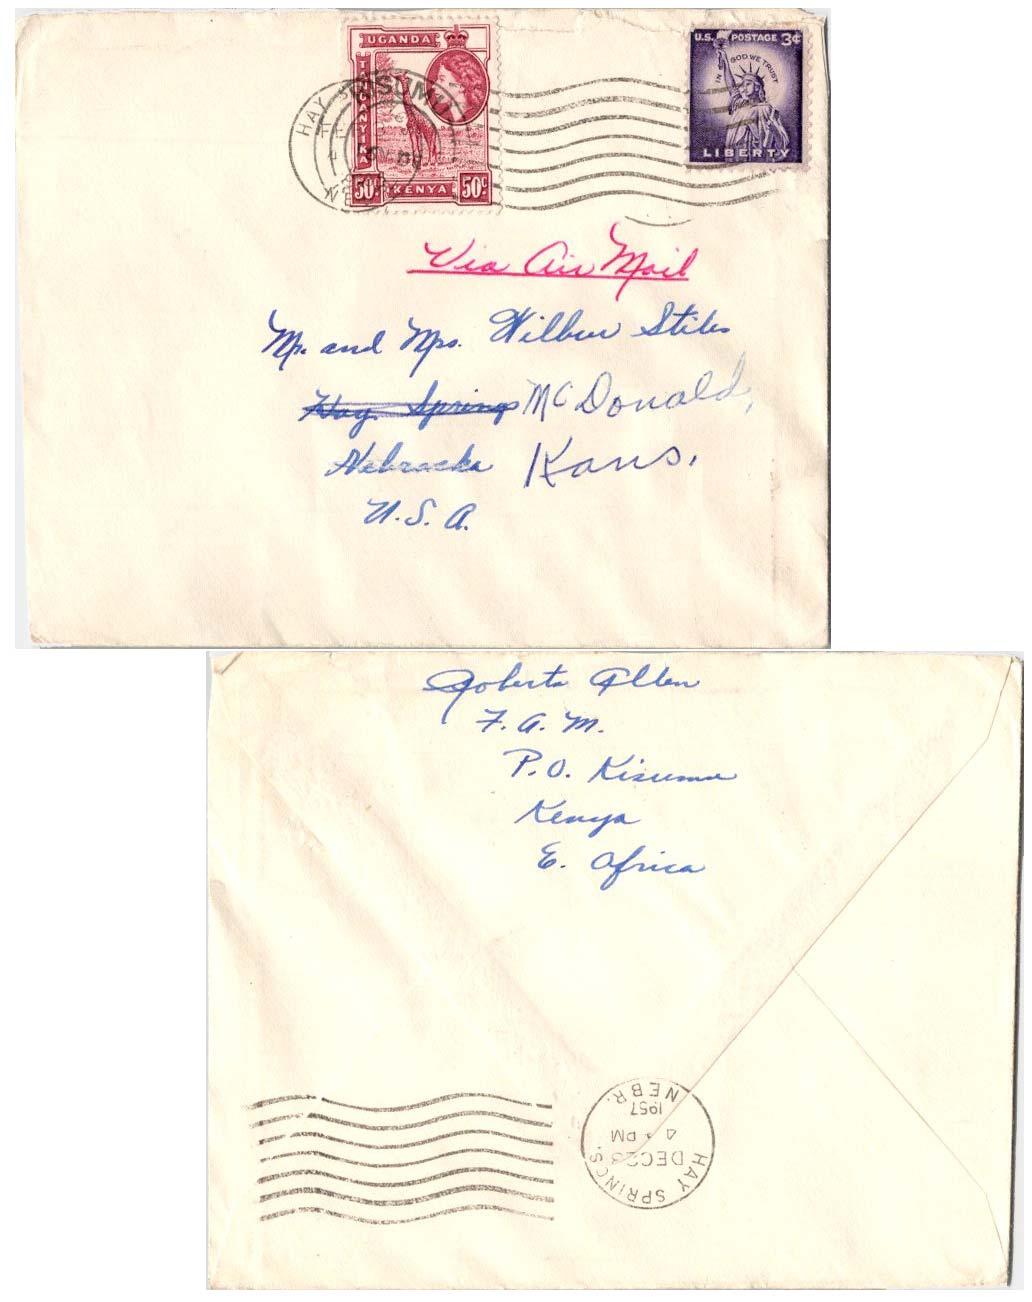 UGANDA
TANGANYIKA
50c KENYA 50c
KISUMU
HAY
U.S. POSTAGE 3¢
IN GOD WE TRUST
LIBERTY
Via Air Mail
Mr. and Mrs. Wilbur Stiles
Hay Springs McDonald,
Nebraska Kans.
U.S.A.
Roberta Allen
F.A.M.
P.O. Kisumu
Kenya
E. Africa
HAY SPRINGS
DEC 23
4 PM
1957
NEBR.